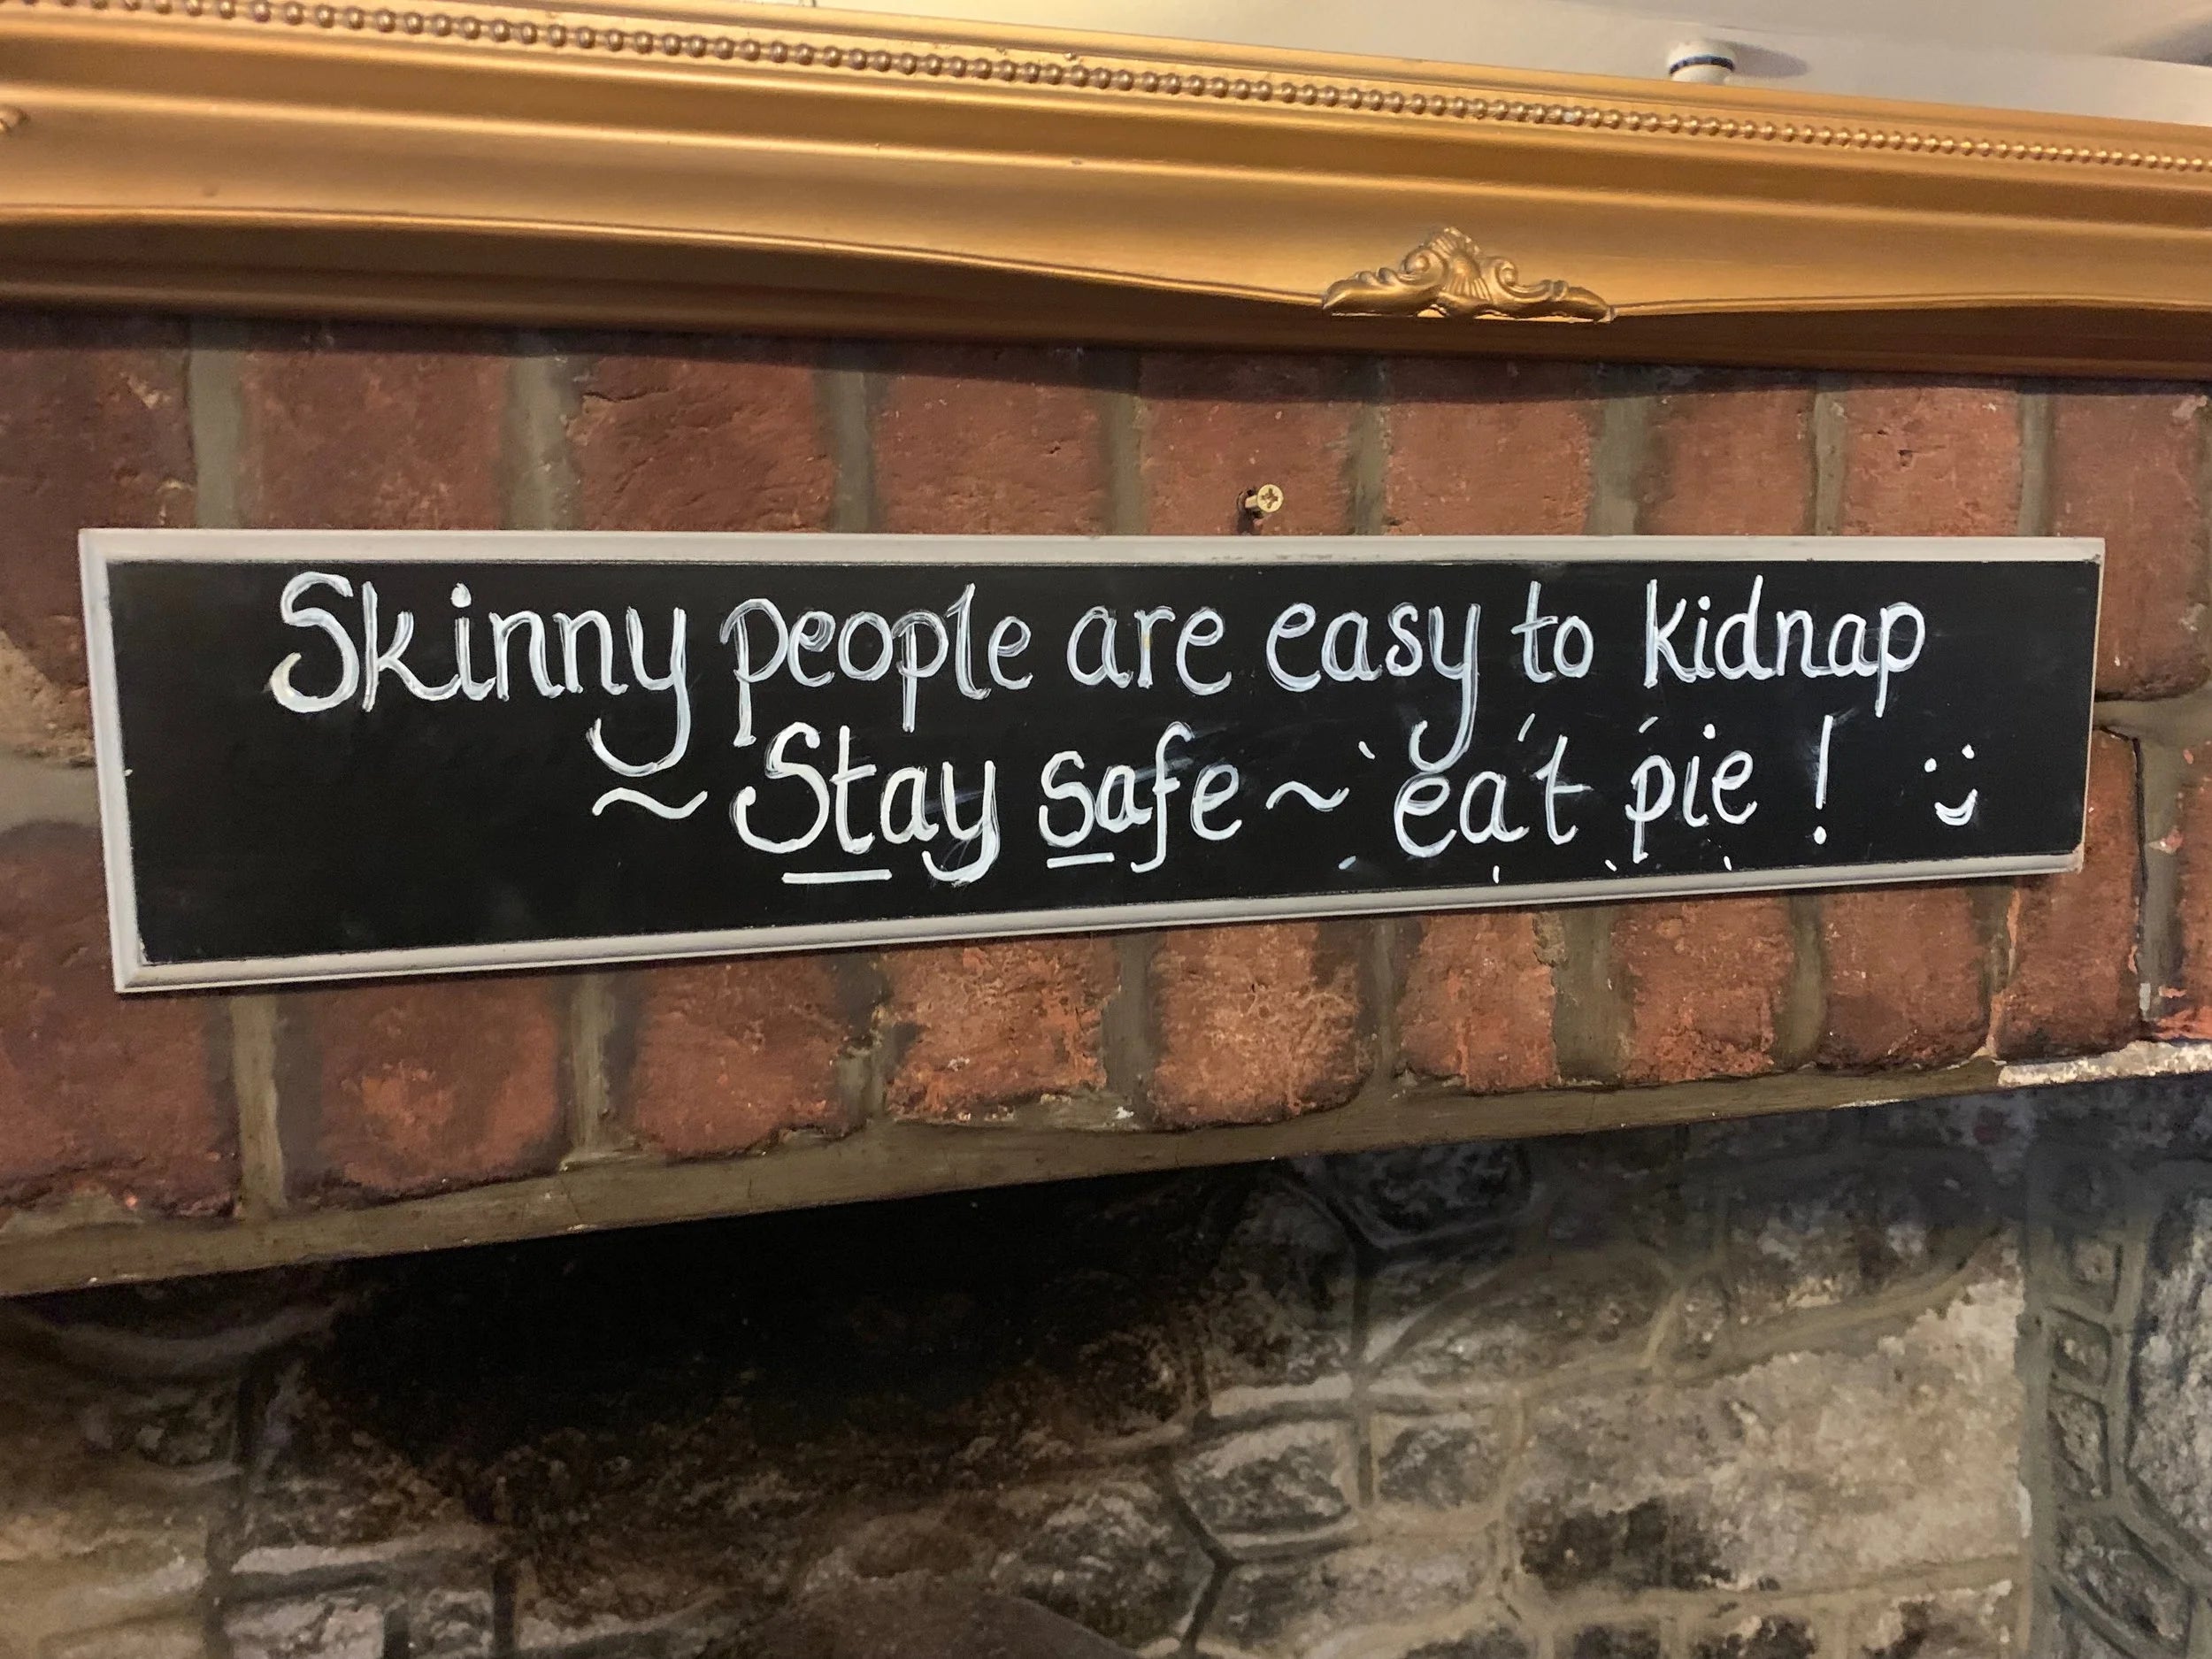 Skinny people are easy to kidnap
~ Stay safe ~ eat pie !